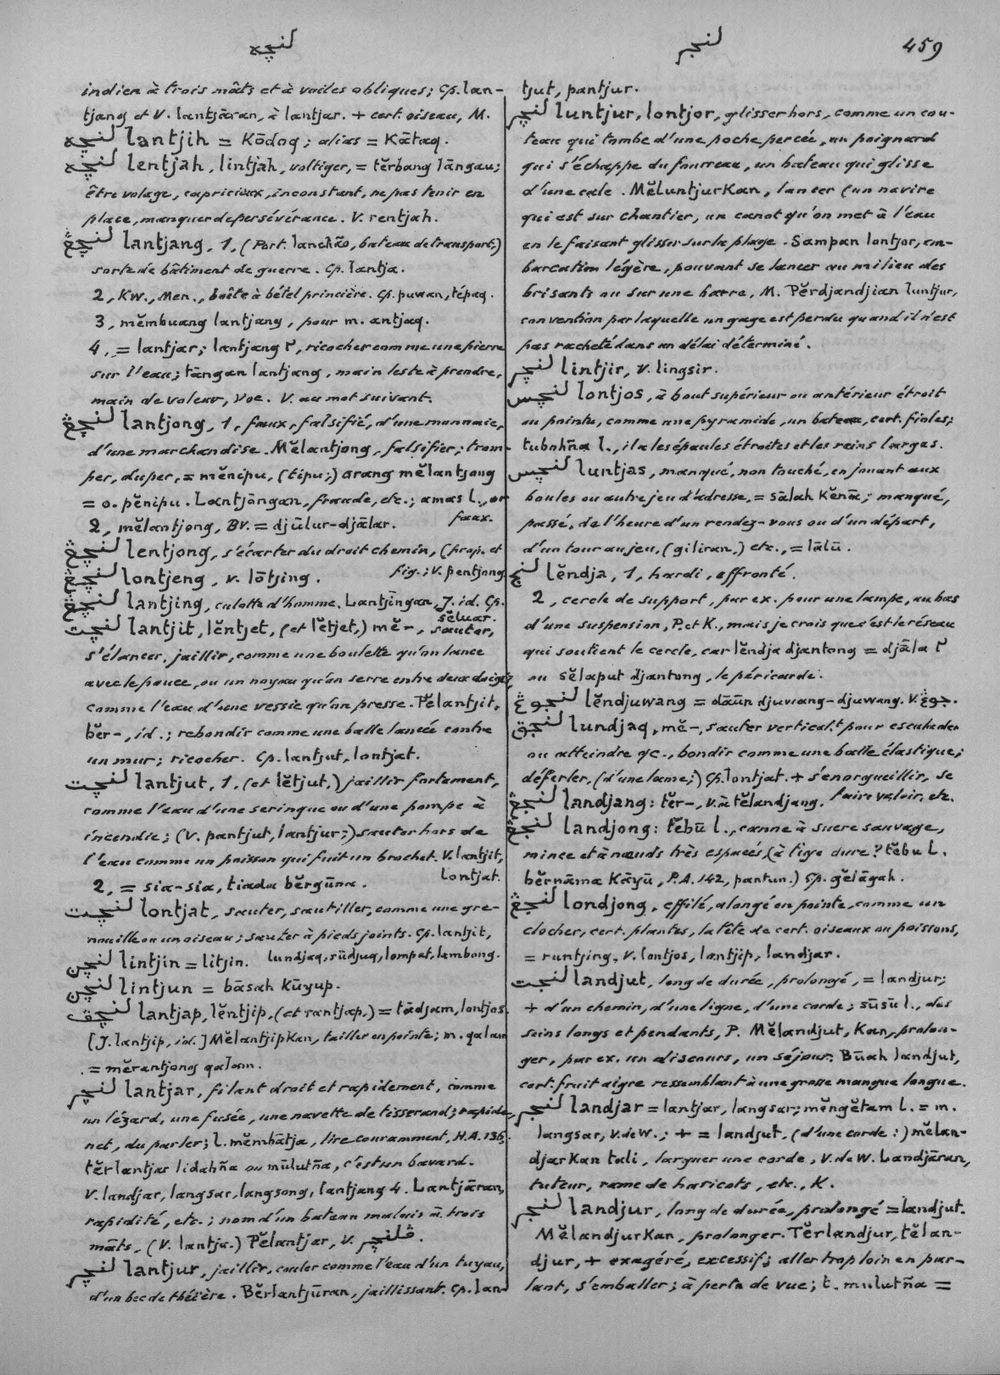 لنچه
لنجر
459
indien à trois mâts et à voiles obliques; Cp. lan-
tjang et V. lantjāran, à lantjar. + cert. oiseau, M.
لنچيه lantjih = Kōdoq; alias = Kātaq.
لنچه lentjah, lintjah, voltiger, = tĕrbang lāngau;
être volage, capricieux, inconstant, ne pas tenir en
place, manquer de persévérance. V. rentjah.
لنچڠ lantjang, 1, (Port. lanchão, bateau de transport)
sorte de bâtiment de guerre. Cp. lantja.
2, Kw., Men., boîte à bétel princière. Cp. puwan, tépaq.
3, mĕmbuang lantjang, pour m. antjaq.
4, = lantjar; lantjang ٢, ricocher comme une pierre
sur l'eau; tāngan lantjang, main leste à prendre,
main de voleur, voc. V. au mot suivant.
لنچڠ lantjong, 1, faux, falsifié, d'une monnaie,
d'une marchandise. Mĕlantjong, falsifier; trom-
per, duper, = mĕnipu, (tipu;) orang mĕlantjong
= o. pĕnipu. Lantjōngan, fraude, etc.; amas l., or
faux.
2, mĕlantjong, BV. = djūlur-djālar.
لنچڠ lentjong, s'écarter du droit chemin, (prop. et
fig.; V. pentjong
لنچيڠ lontjeng, v. lōtjing.
لنچيڠ lantjing, culotte d'homme. Lantjingan, J. id. Cp.
sĕluar.
لنچت lantjit, lĕntjet, (et lĕtjet,) mĕ-, sauter,
s'élancer, jaillir, comme une boulette qu'on lance
avec le pouce, ou un noyau qu'on serre entre deux doigts,
comme l'eau d'une vessie qu'on presse. Pĕlantjit,
bĕr-, id.; rebondir comme une balle lancée contre
un mur; ricocher. Cp. lantjut, lontjat.
لنچت lantjut, 1, (et lĕtjut,) jaillir fortement,
comme l'eau d'une seringue ou d'une pompe à
incendie; (V. pantjut, lantjur;) sauter hors de
l'eau comme un poisson qui fuit un brochet. V. lantjit,
lontjat.
2, = sia-sia, tiada bĕrgūna.
لنچت lontjat, sauter, sautiller, comme une gre-
nouille ou un oiseau; sauter à pieds joints. Cp. lantjit,
lundjaq, sūdjuq, lompat, lembang.
لنچين lintjin = litjin.
لنچن lintjun = bāsah Kūyup.
لنچڤ lantjap, lĕntjip, (et rantjap,) = tādjam, lontjos.
[J. lantjip, id.] Mĕlantjipkan, tailler en pointe; m. qalam
= mĕrantjong qalam.
لنچر lantjar, filant droit et rapidement, comme
un lézard, une fusée, une navette de tisserand; rapide,
net, du parler; l. mĕmbātja, lire couramment, H.A. 136.
tĕrlantjar lidahña ou mūlutña, c'est un bavard.
V. landjar, langsar, langsong, lantjang 4. Lantjāran,
rapidité, etc.; nom d'un bateau malais à trois
mâts, (V. lantja.) Pĕlantjar, V. ڤلنچر.
لنچر lantjur, jaillir, couler comme l'eau d'un tuyau,
d'un bec de théière. Bĕrlantjūran, jaillissant. Cp. lan-
tjut, pantjur.
لنچر luntjur, lontjor, glisser hors, comme un cou-
teau qui tombe d'une poche percée, un poignard
qui s'échappe du fourreau, un bateau qui glisse
d'une cale. Mĕluntjurkan, lancer (un navire
qui est sur chantier, un canot qu'on met à l'eau
en le faisant glisser sur la plage. Sampan lontjor, em-
barcation légère, pouvant se lancer au milieu des
brisants ou sur une barre, M. Pĕrdjandjian luntjur,
convention par laquelle un gage est perdu quand il n'est
pas racheté dans un délai déterminé.
لنچر lintjir, v. lingsir.
لنچس lontjos, à bout supérieur ou antérieur étroit
ou pointu, comme une pyramide, un bateau, cert. fioles;
tubuhña l., il a les épaules étroites et les reins larges.
لنچس luntjas, manqué, non touché, en jouant aux
boules ou autre jeu d'adresse, = sālah Kĕna; manqué,
passé, de l'heure d'un rendez-vous ou d'un départ,
d'un tour au jeu, (giliran,) etc., = lālū.
لنج lĕndja, 1, hardi, effronté.
2, cercle de support, par ex. pour une lampe, au bas
d'une suspension, P. et K., mais je crois que c'est le réseau
qui soutient le cercle, car lĕndja djantong = djāla ٢
ou sĕlaput djantong, le péricarde.
لنجووڠ lĕndjuwang = dāūn djuwang-djuwang. V. جووڠ.
لنجق lundjaq, mĕ-, sauter vertical.t pour escalader
ou atteindre qc., bondir comme une balle élastique;
déferler, (d'une lame;) Cp. lontjat. + s'enorgueillir, se
faire valoir, etc.
لنجڠ landjang: tĕr-, v. à tĕlandjang.
لنجڠ landjong: tĕbū l., canne à sucre sauvage,
mince et à nœuds très espacés, (à tige dure? tĕbu l.
bĕrnāma Kāyū, P.A. 142, pantun.) Cp. gĕlāgah.
لنجڠ londjong, effilé, alongé en pointe, comme un
clocher, cert. plantes, la tête de cert. oiseaux ou poissons,
= runtjing. V. lontjos, lantjip, landjar.
لنجت landjut, long de durée, prolongé, = landjur;
+ d'un chemin, d'une ligne, d'une corde; sūsū l., des
seins longs et pendants, P. Mĕlandjut, Kan, prolon-
ger, par ex. un discours, un séjour. Būah landjut,
cert. fruit aigre ressemblant à une grosse mangue longue.
لنجر landjar = lantjar, langsar; mĕngĕtam l. = m.
langsar, V. de W.; + = landjut, (d'une corde:) mĕlan-
djarkan tali, larguer une corde, V. de W. Landjāran,
tuteur, rame de haricots, etc., K.
لنجر landjur, long de durée, prolongé = landjut.
Mĕlandjurkan, prolonger. Tĕrlandjur, tĕlan-
djur, + exagéré, excessif; aller trop loin en par-
lant, s'emballer; à perte de vue; t. mulutña =